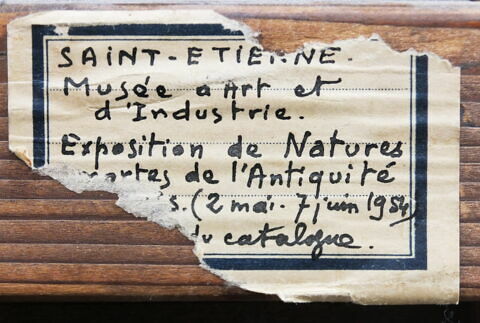 SAINT-ETIENNE.
Musée d'Art et
d'Industrie.
Exposition de Natures
mortes de l'Antiquité
s. (2 mai. 7 juin 1954)
du catalogue.